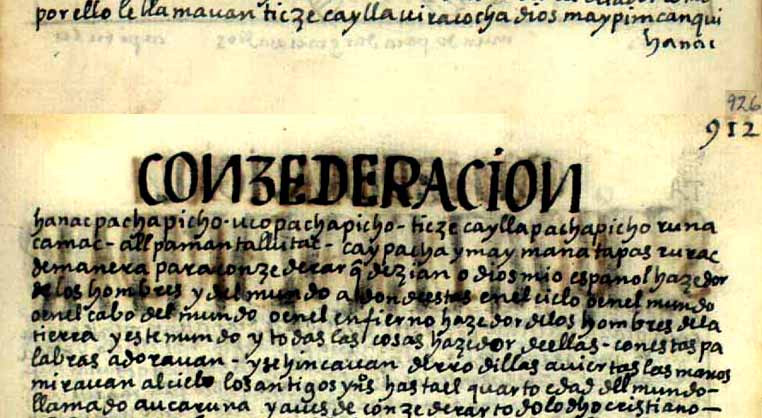 por ello le llamauan ticze caylla uiracocha dios maypim canqui
hanac
926
912
CONZEDERACIÓN
hanacpachapicho - ucopachapicho - ticze cayllapachapicho runa
camac - allpamanta llutac - caypacha ymaymanatapas rurac
de manera para conzederar q̃ dezian o dios mio español hazedor
de los hombres y del mundo adonde estas en el cielo o en el mundo
o en el cabo del mundo o en el enfierno hazedor de los hombres de la
tierra y este mundo y todas las cosas hazedor de ellas - con estas pa
labras adorauan - y se hincauan de rrodillas auiertas las manos
mirauan al cielo los antigos yn̄s hasta el quarto edad del mundo -
llamado aucaruna y aues de conzederar todo lo dho cristiano -